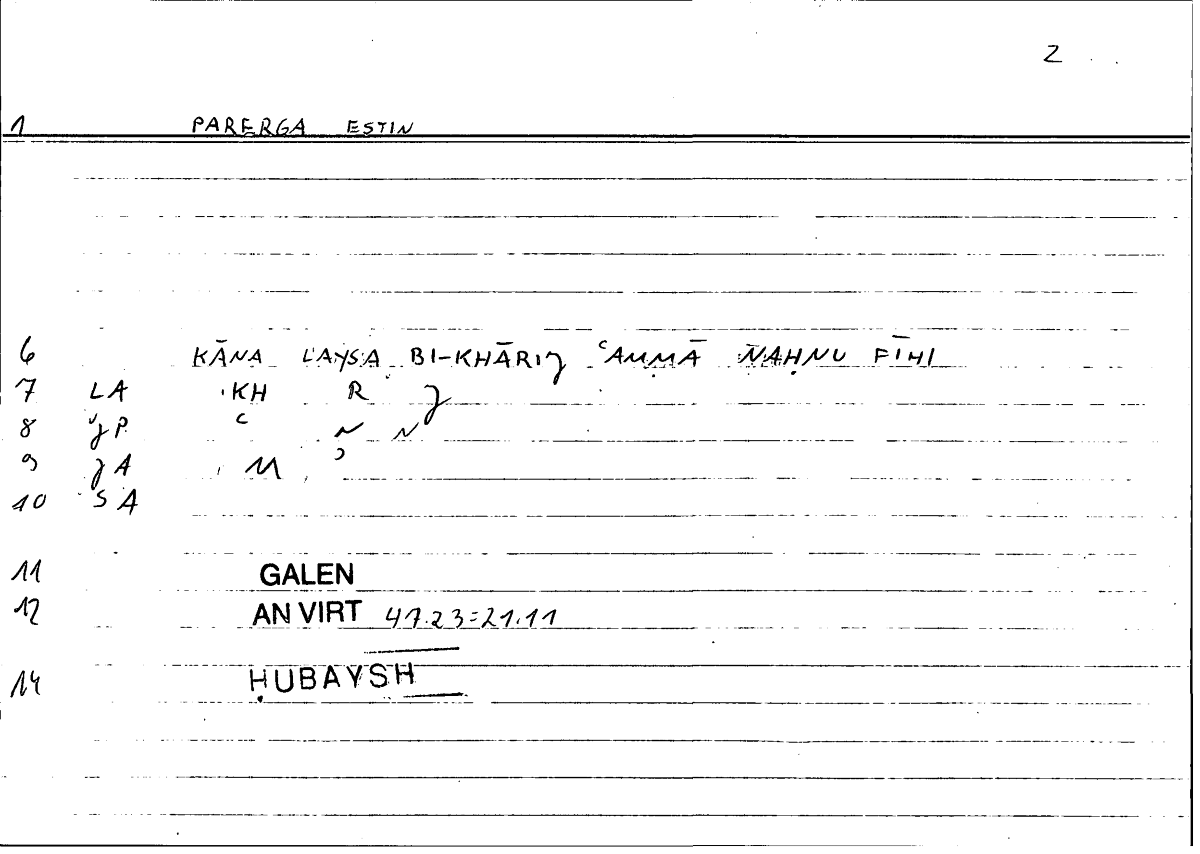 2
1 PARERGA ESTIN
6 KĀNA LAYSA BI-KHĀRIJ ʿAMMĀ NAḤNU FĪHI
7 LA KH R J
8 JP ʿ N N
9 JA M ʾ
10 SA
11 GALEN
12 AN VIRT 47.23=21.11
14 ḤUBAYSH